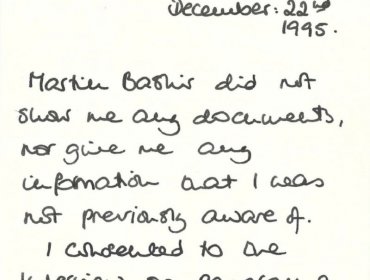 December: 22nd
1995.
Martin Bashir did not
show me any documents,
nor give me any
information that I was
not previously aware of.
I consented to the
interview on Panorama